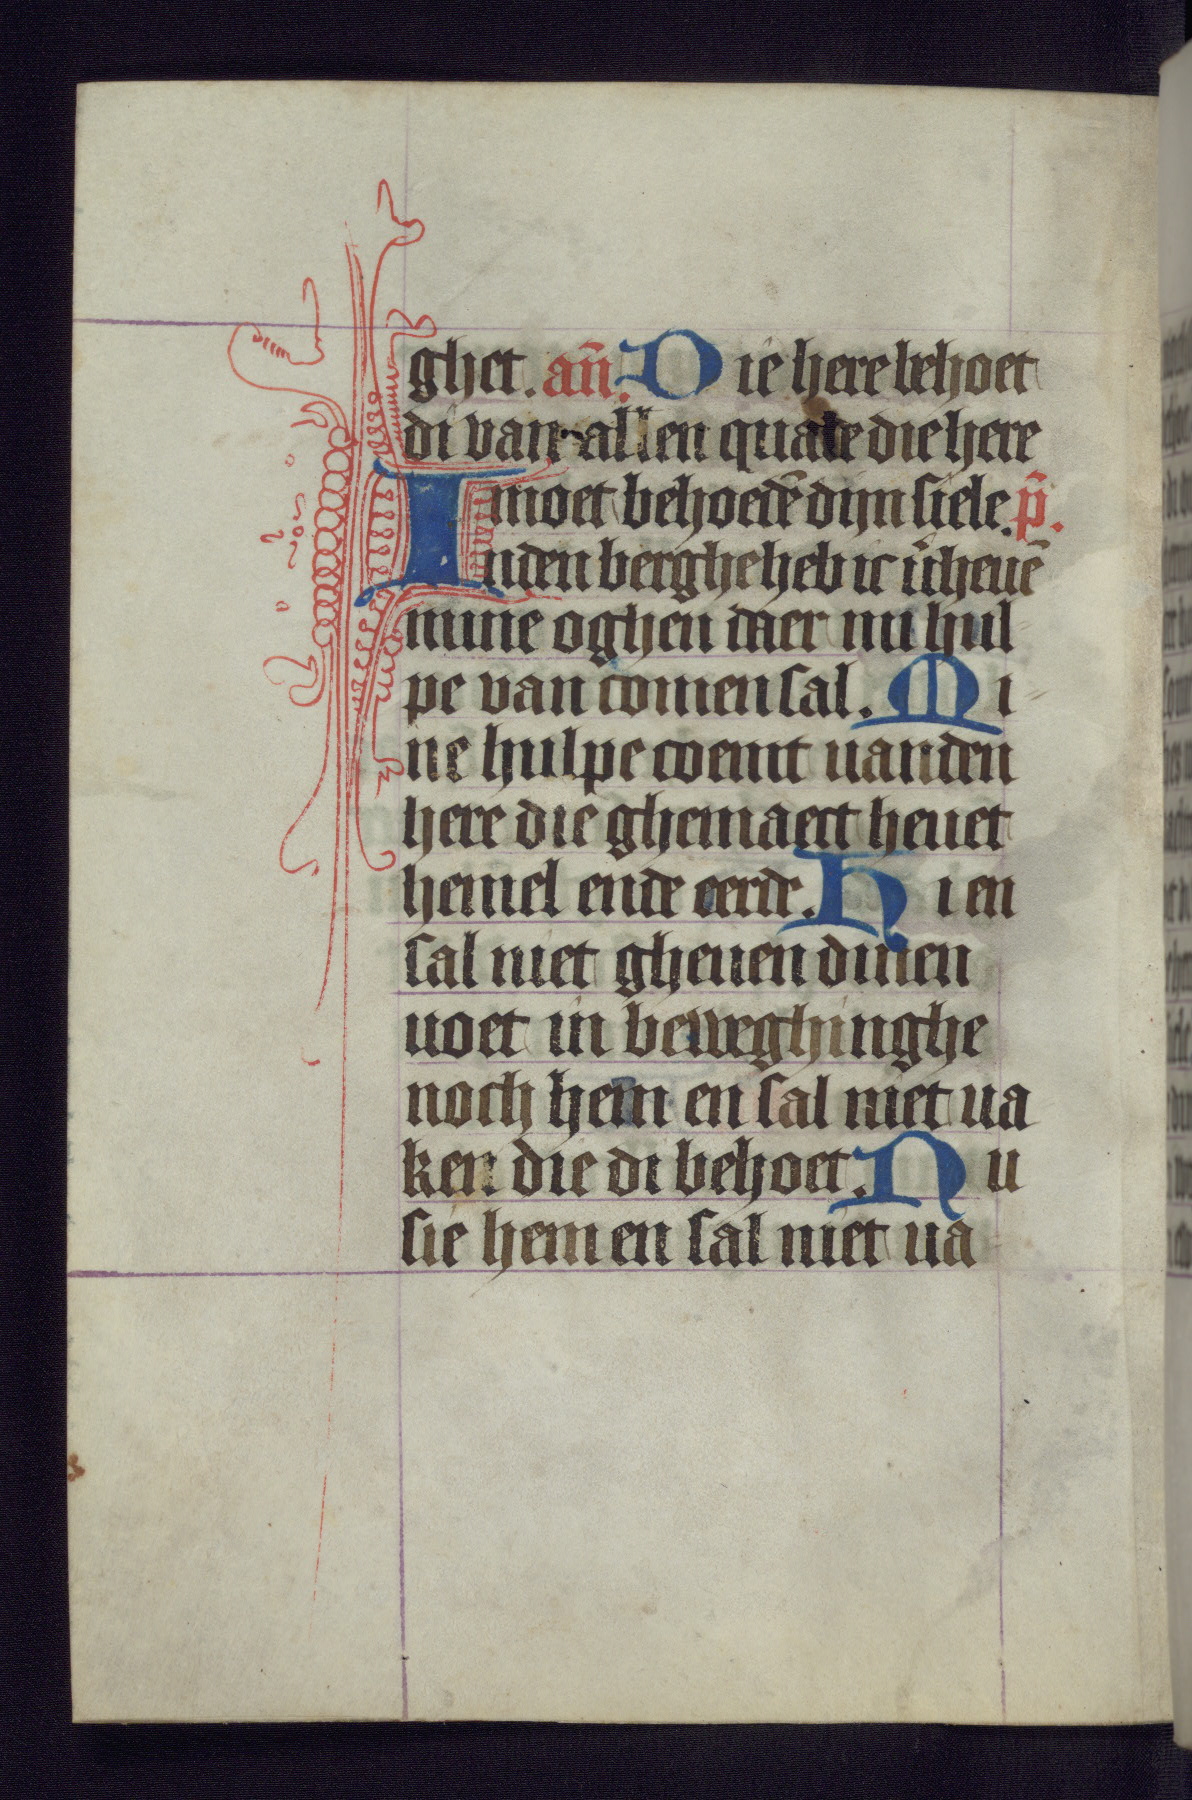 ghet. an̄. Die here behoet
di van allen quade die here
moet behoedē dijn siele. p̄.
Inden berghe heb ic v̄heuē
mine oghen daer mi hul
pe van comen sal. Mi
ne hulpe coemt uanden
here die ghemaect heuet
hemel ende eerde. Hi en
sal niet gheuen dinen
uoet in beweghinghe
noch hem en sal niet ua
ken die di behoet. Nu
sie hem en sal niet ua